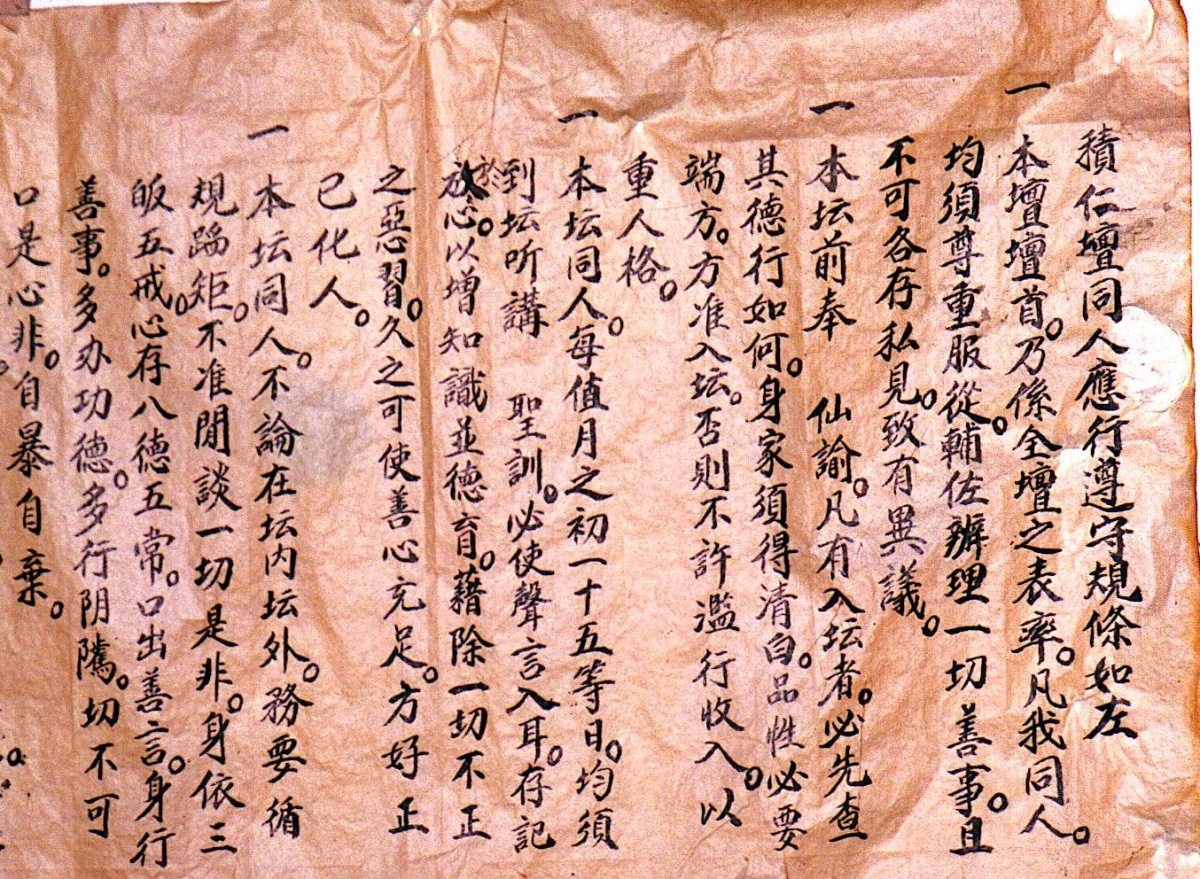 積仁壇同人應行遵守規條如左
一 本壇壇首。乃係全壇之表率。凡我同人。
均須尊重服從。輔佐辦理一切善事。且
不可各存私見。致有異議。
一 本坛前奉 仙諭。凡有入坛者。必先查
其德行如何。身家須得清白。品性必要
端方。方准入坛。否則不許濫行收入。以
重人格。
一 本坛同人。每值月之初一十五等日。均須
到坛听講 聖訓。必使聲言入耳。存記
於心。以增知識並德育。藉除一切不正
之惡習。久之可使善心充足。方好正
己化人。
一 本坛同人。不論在坛内坛外。務要循
規蹈矩。不准閒談一切是非。身依三
皈五戒。心存八德五常。口出善言。身行
善事。多办功德。多行阴騭。切不可
口是心非。自暴自棄。